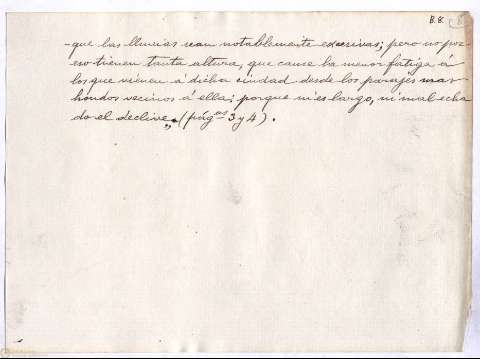 B. 8.
- que las lluvias sean notablemente excesivas; pero no por
eso tienen tanta altura, que cause la menor fatiga a
los que vienen á dicha ciudad desde los parajes mas
hondos vecinos á ella; porque ni es largo, ni mal echa
do el declive. (págas 3 y 4).